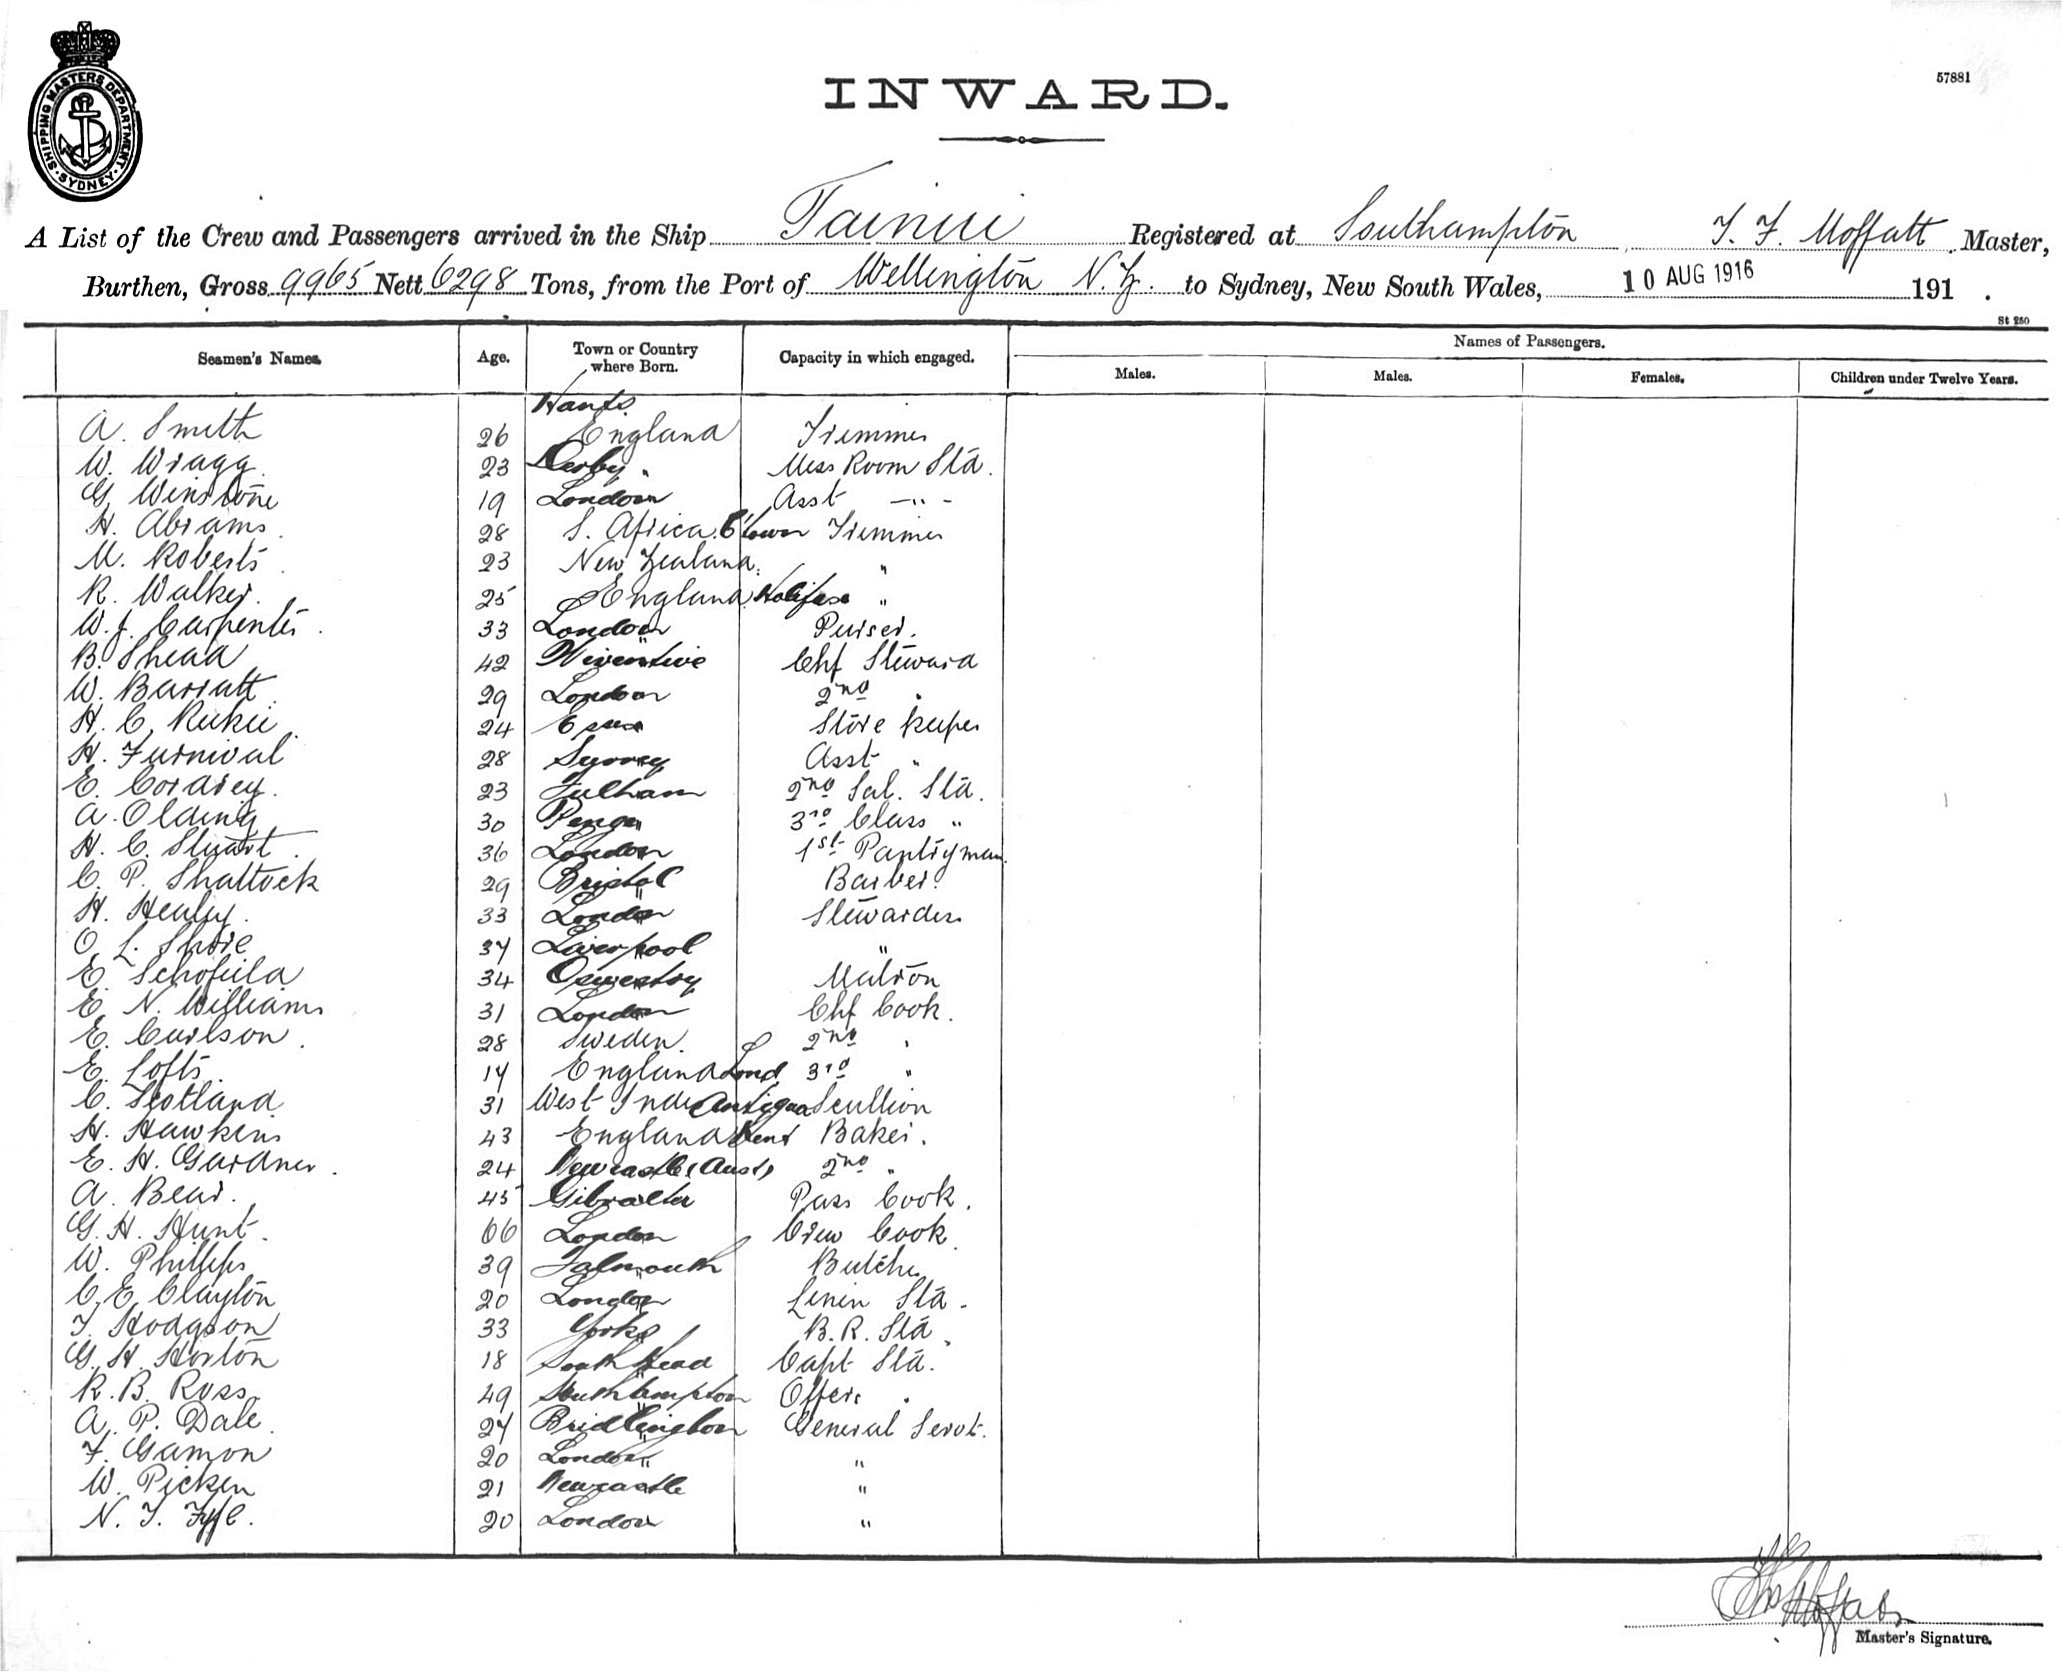 SHIPPING MASTERS DEPARTMENT · SYDNEY ·
INWARD.
57881
A List of the Crew and Passengers arrived in the Ship Tainui Registered at Southampton T. F. Moffatt Master,
Burthen, Gross 9965 Nett 6298 Tons, from the Port of Wellington N.Z. to Sydney, New South Wales, 10 AUG 1916 191 .
St 250
Seamen's Names. Age. Town or Country where Born. Capacity in which engaged. Names of Passengers.
Males. Males. Females. Children under Twelve Years.
Hants
A. Smith 26 England Trimmer
W. Wragg 23 Derby " Mess Room Std.
G. Winstone 19 London Asst — " -
H. Abrams 28 S. Africa C'town Trimmer
M. Roberts 23 New Zealand "
R. Walker 25 England Halifax "
W. J. Carpenter 33 London Purser.
B. Shead 42 Chf Steward
W. Barratt 29 London 2nd "
H. C. 24 Essex Store Keeper
H. Furnival 28 Surrey Asst "
E. Cordrey. 23 Fulham 2nd Sal. Std.
A. Olding 30 Penge 3rd Class "
H. C. Stuart 36 London 1st Pantryman.
C. P. Shattock 29 Bristol Barber.
H. Healey. 33 London Stewardess
O. L. Shore 37 Liverpool "
E. Schofield 34 Oswestry Matron
E. N. Williams 31 London Chf Cook.
E. Carlson 28 Sweden. 2nd "
E. Lofts 17 England Lond. 3rd "
C. Scotland 31 West Indies Antigua Scullion
H. Hawkins 43 England Kent Baker.
E. H. Gardner. 24 Newcastle (Aust) 2nd "
A. Bear. 45 Gibralta Pass Cook.
G. H. Hunt. 66 London Crew Cook.
W. Phillips 39 Falmouth Butcher
C. E. Clayton 20 London Linen Std.
T. Hodgson 33 Yorks B. R. Std.
G. H. Horton 18 Head Capt Std.
R. B. Ross 49 Southampton Offers "
A. P. Dale 27 Bridlington General Servt.
F. Gamon 20 London "
W. Picken 21 Newcastle "
N. T. Fyfe. 20 London "
Master's Signature.